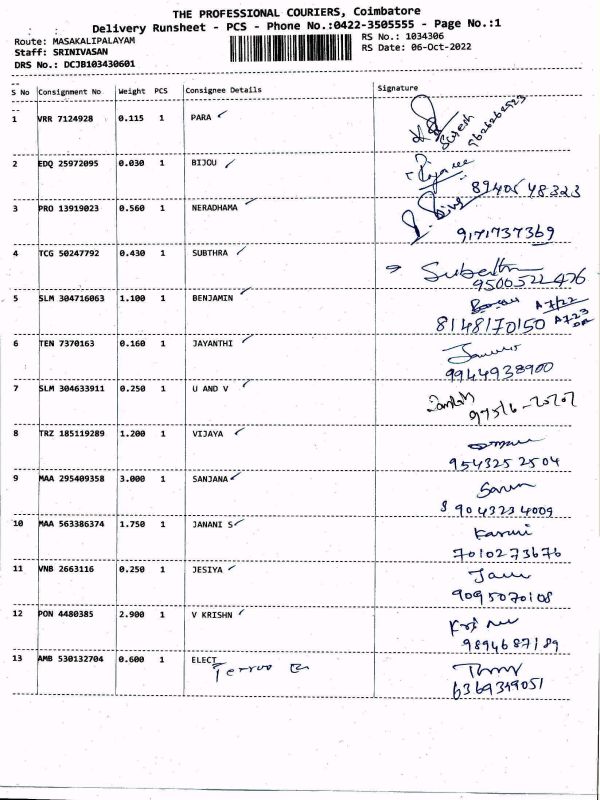 THE PROFESSIONAL COURIERS, Coimbatore
Delivery Runsheet - PCS - Phone No.:0422-3505555 - Page No.:1
Route: MASAKALIPALAYAM RS No.: 1034306
Staff: SRINIVASAN RS Date: 06-Oct-2022
DRS No.: DCJB103430601
S No Consignment No Weight PCS Consignee Details Signature
1 VRR 7124928 0.115 1 PARA
2 EDQ 25972095 0.030 1 BIJOU
89405 48323
3 PRO 13919023 0.560 1 NERADHAMA
9171737369
4 TCG 50247792 0.430 1 SUBTHRA
9500522476
5 SLM 304716063 1.100 1 BENJAMIN
8148170150
6 TEN 7370163 0.160 1 JAYANTHI
9944938900
7 SLM 304633911 0.250 1 U AND V
8 TRZ 185119289 1.200 1 VIJAYA
954325 2504
9 MAA 295409358 3.000 1 SANJANA
9043234009
10 MAA 563386374 1.750 1 JANANI S
7010273676
11 VNB 2663116 0.250 1 JESIYA
9095070108
12 PON 4480385 2.900 1 V KRISHN
9894687189
13 AMB 530132704 0.600 1 ELECT
6369319051